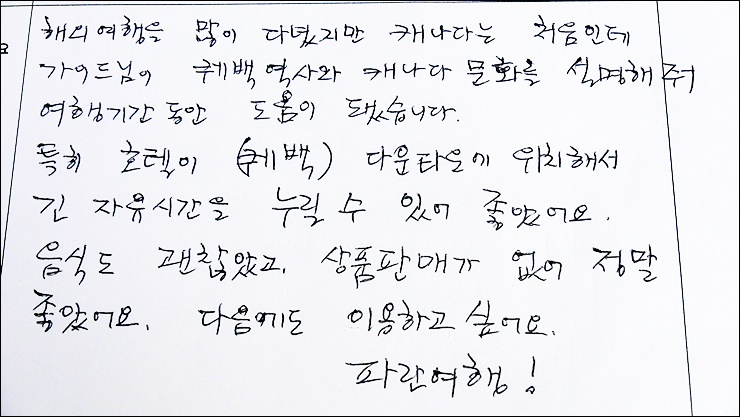 해외여행을 많이 다녔지만 캐나다는 처음인데
가이드님이 퀘백역사와 캐나다 문화를 설명해 주어
여행기간 동안 도움이 됐습니다.
특히 호텔이 (퀘백) 다운타운에 위치해서
긴 자유시간을 누릴 수 있어 좋았어요.
음식도 괜찮았고, 상품판매가 없어 정말
좋았어요. 다음에도 이용하고 싶어요.
파란여행!